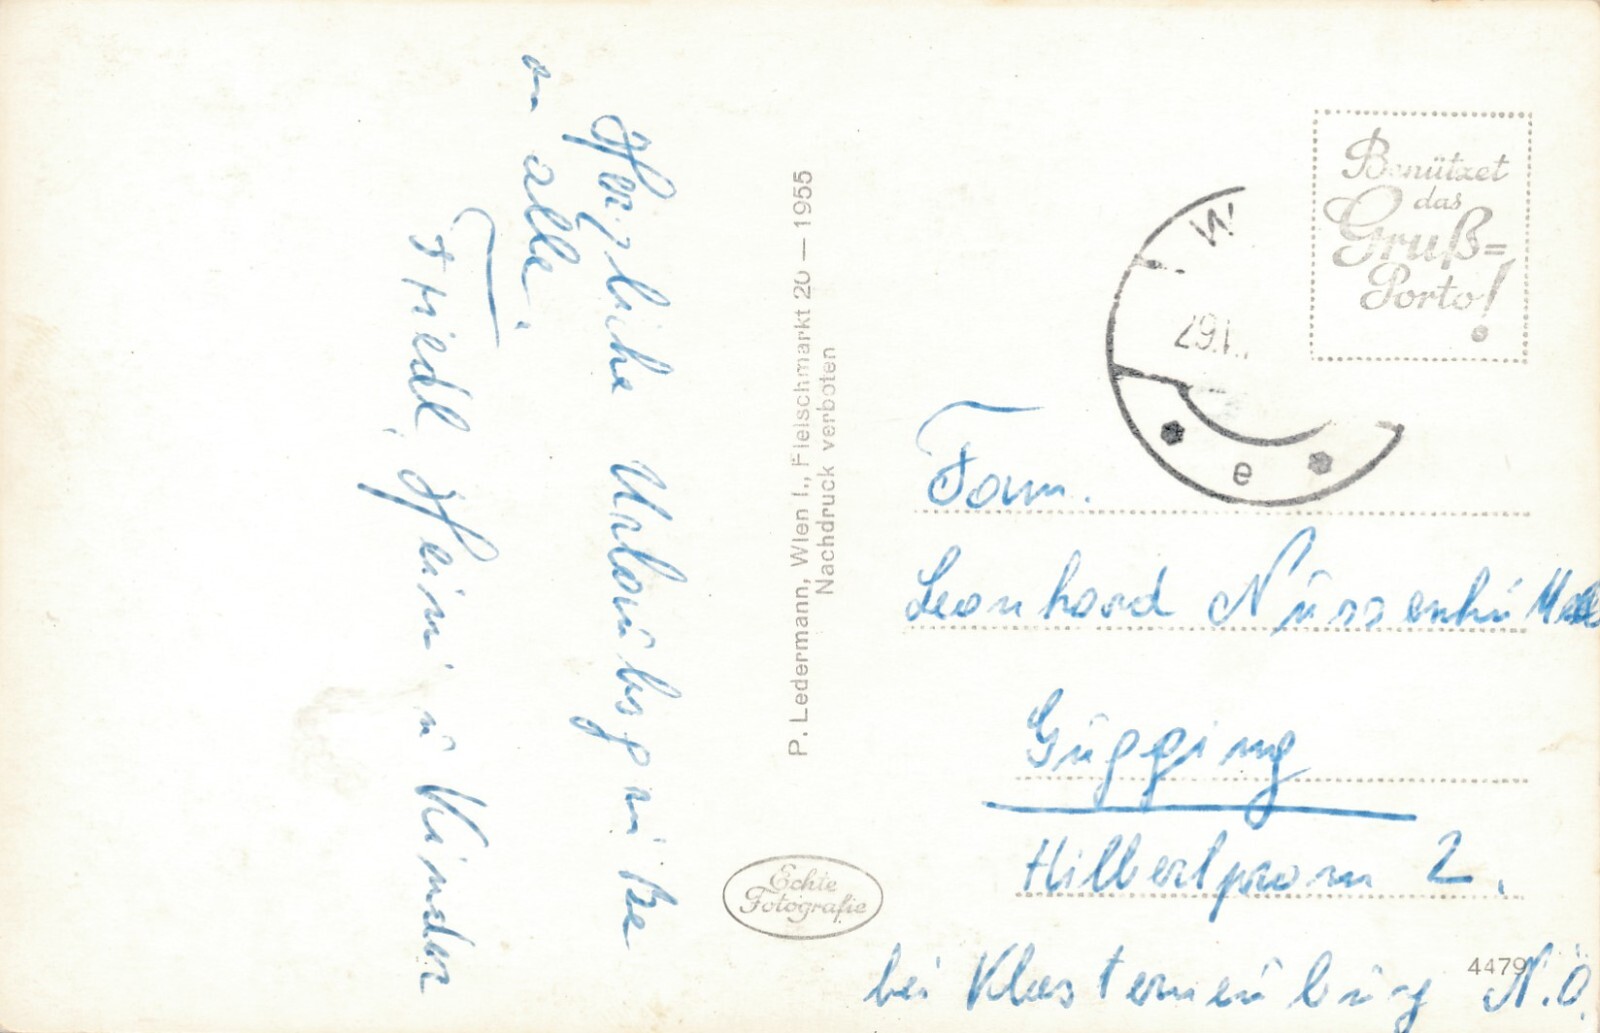 Herzliche Urlaubsgrüße
an alle.
Friedl, Heini u Kinder
P. Ledermann, Wien I., Fleischmarkt 20 — 1955
Nachdruck verboten
Echte
Fotografie
Benützet
das
Gruß=
Porto!
W
29.
e
Fam.
Leonhard
Gugging
2.
bei Klosterneuburg N.Ö.
4479